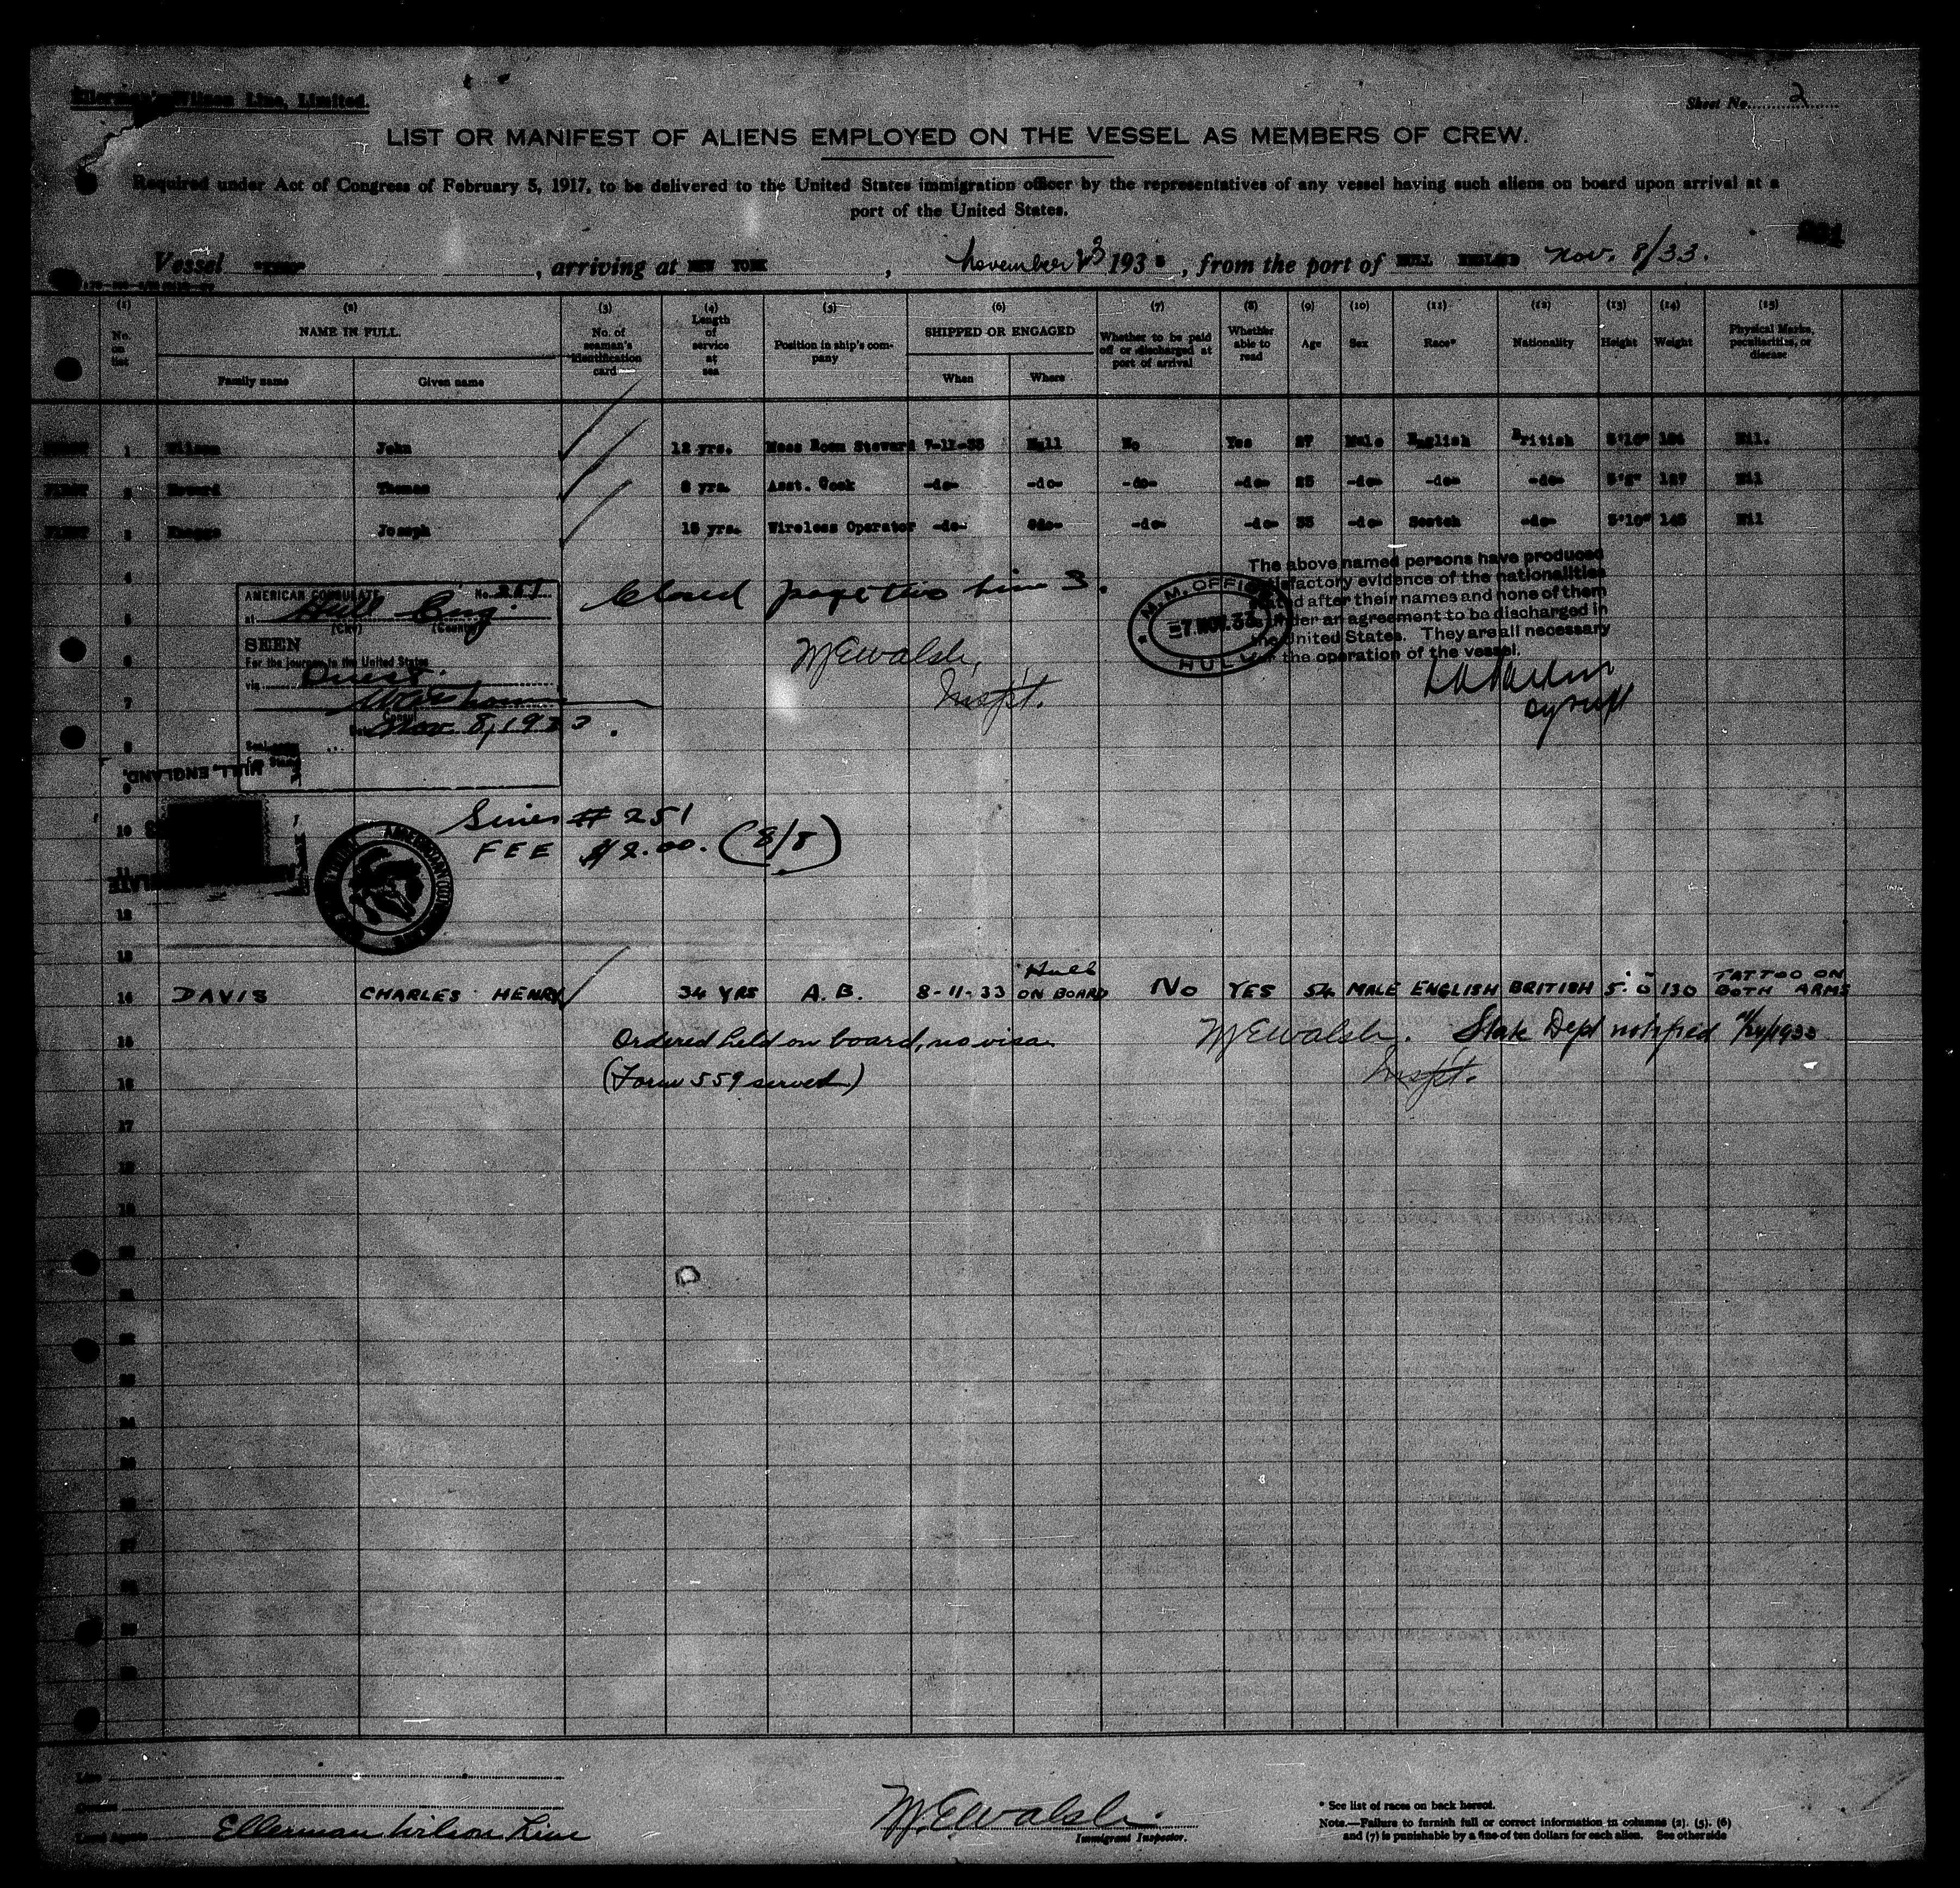 Ellerman's Wilson Line, Limited.
Sheet No. 2
LIST OR MANIFEST OF ALIENS EMPLOYED ON THE VESSEL AS MEMBERS OF CREW.
Required under Act of Congress of February 5, 1917, to be delivered to the United States immigration officer by the representatives of any vessel having such aliens on board upon arrival at a
port of the United States.
Vessel , arriving at NEW YORK , November 23 193 , from the port of HULL ENGLAND Nov. 8/33.
(1) (2) (3) (4) (5) (6) (7) (8) (9) (10) (11) (12) (13) (14) (15)
No. on list NAME IN FULL. Family name Given name No. of seaman's identification card Length of service at sea Position in ship's company SHIPPED OR ENGAGED When Where Whether to be paid off or discharged at port of arrival Whether able to read Age Sex Race* Nationality Height Weight Physical Marks, peculiarities, or disease
1 Wilson John 12 yrs. Mess Room Steward 7-11-33 Hull No Yes 27 Male English British 5'10" Nil.
2 Howard Thomas yrs. Asst. Cook -do- -do- -do- -do- 25 -do- -do- -do- 127 Nil
3 Knaggs Joseph 15 yrs. Wireless Operator -do- -do- -do- -do- 35 -do- Scotch -do- 5'10" 145 Nil
4
Closed page two line 3.
M E Walsh,
Inspt.
AMERICAN CONSULATE No. 251
at Hull Eng.
(City) (Country)
SEEN
For the journey to the United States
via Direct
Consul
Date Nov 8, 1933.
HULL, ENGLAND.
M. M. OFFICE
7 NOV. 33
HULL
The above named persons have produced
satisfactory evidence of the nationalities
stated after their names and none of them
is under an agreement to be discharged in
the United States. They are all necessary
for the operation of the vessel.
Series # 251
FEE $2.00. (8/8)
14 DAVIS CHARLES HENRY 34 YRS A.B. 8-11-33 Hull ON BOARD NO YES 54 MALE ENGLISH BRITISH 5'.0" 130 TATTOO ON BOTH ARMS
15 Ordered held on board, no visa. M E Walsh. State Dept notified 11/24/1933
16 (Form 559 served) Inspt.
17
18
19
20
21
22
23
24
25
26
27
28
29
30
Line
Owners
Local Agents Ellerman Wilson Line
M. E. Walsh.
Immigrant Inspector.
* See list of races on back hereof.
Note.—Failure to furnish full or correct information in columns (2), (5), (6)
and (7) is punishable by a fine of ten dollars for each alien. See other side